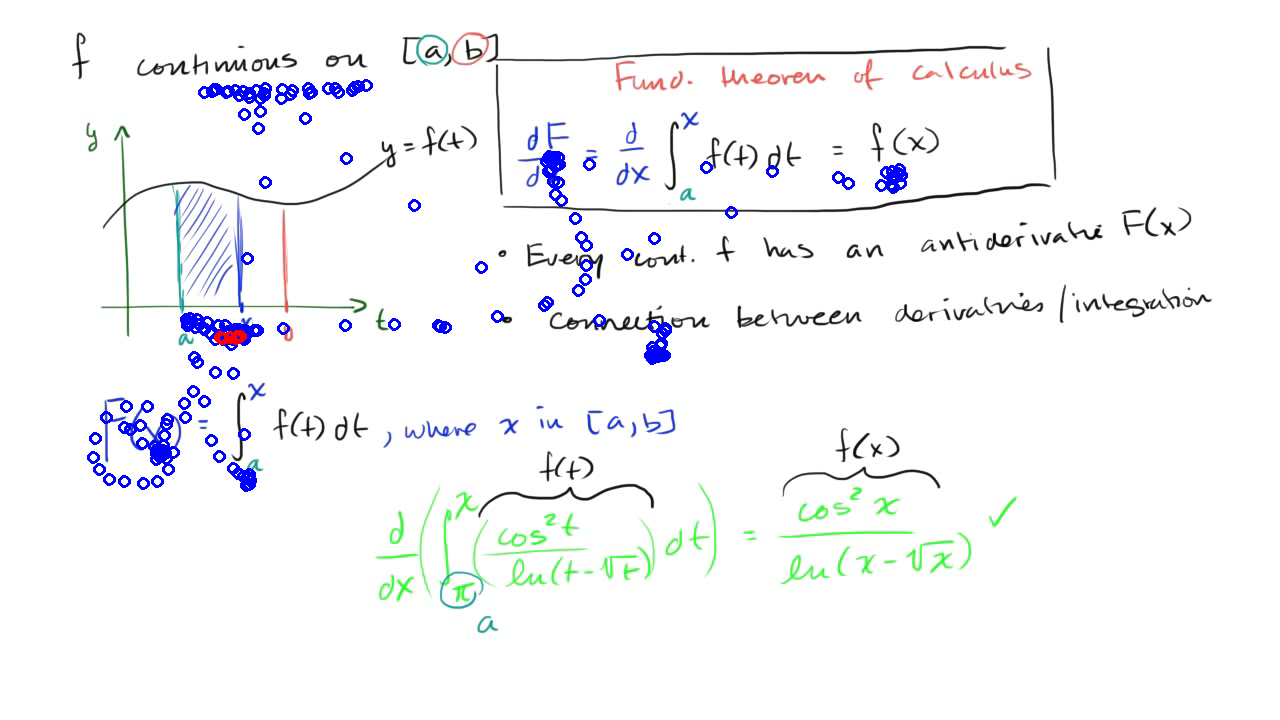 f continuous on [a,b]
Fund. theorem of calculus
dF/d = d/dx ∫_a^x f(t) dt = f(x)
y
y = f(t)
a x b t
• Every cont. f has an antiderivative F(x)
• Connection between derivatives/integration
F(x) = ∫_a^x f(t) dt, where x in [a,b]
f(t) f(x)
d/dx (∫_π^x (cos²t / ln(t-√t)) dt) = cos²x / ln(x-√x) ✓
a